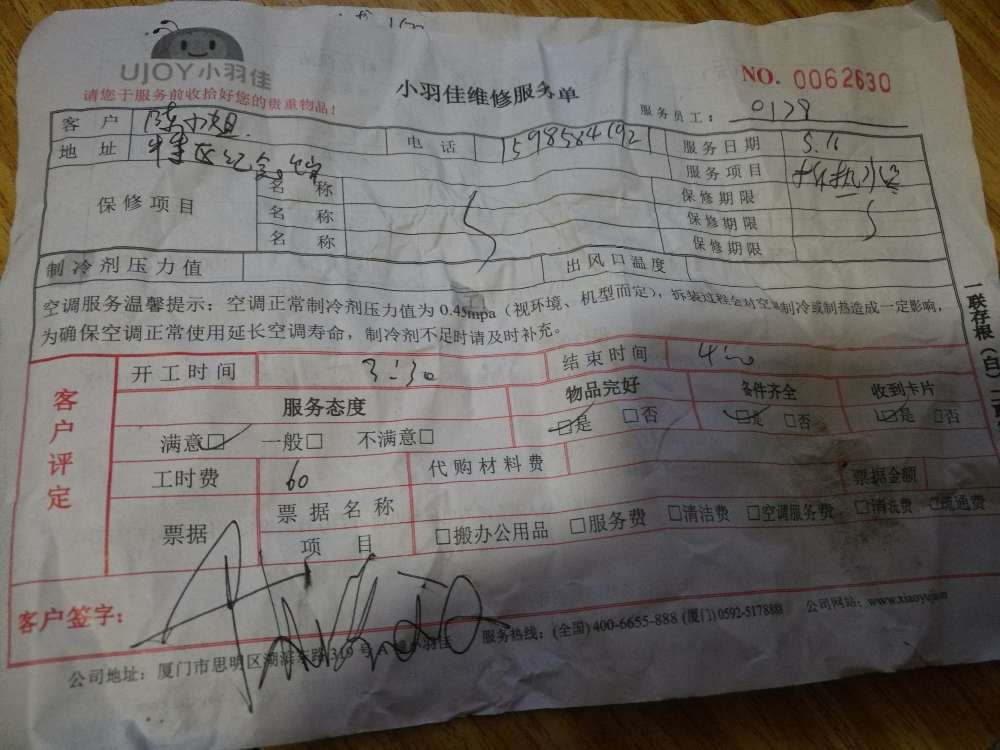 UJOY小羽佳
请您于服务前收拾好您的贵重物品!
小羽佳维修服务单
NO. 0062630
服务员工: 0139
客户 陈小姐 电话 服务日期 5.11
地址 服务项目
保修项目 名称 保修期限
名称 保修期限
名称 保修期限
制冷剂压力值 出风口温度
空调服务温馨提示:空调正常制冷剂压力值为0.45mpa(视环境、机型而定),拆装过程会对空调制冷或制热造成一定影响,
为确保空调正常使用延长空调寿命,制冷剂不足时请及时补充。
一联存根(白)
客户评定
开工时间 3:30 结束时间 4:00
服务态度 物品完好 备件齐全 收到卡片
满意□ 一般□ 不满意□ □是 □否 □是 □否 □是 □否
工时费 60 代购材料费 票据金额
票据 票据名称
项目 □搬办公用品 □服务费 □清洁费 □空调服务费 □清洗费 □疏通费
客户签字:
公司地址:厦门市思明区湖滨东路319号 小羽佳 服务热线:(全国)400-6655-888 (厦门)0592-5178888 公司网站: